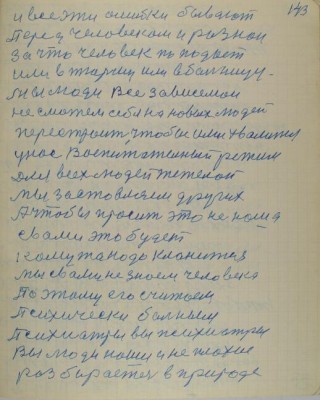 143
и все эти ошибки бывают
перед человеком и разной
за что человек попадает
или в тюрьму или в больницу.
мы люди все зависемои
не сможем себя на новых людей
перестроит, чтобы ими хвалится
у нас Воспитательный режим
для всех людей тежелой
мы заставляем других
А чтобы просит это не наша
с вами это будет
кому то надо кланится
мы с вами не знаем человека
Поэтому его считаем
Психически больным
Психиатры вы психиатры
Вы люди наши и не плохие
разбираетеь в природе